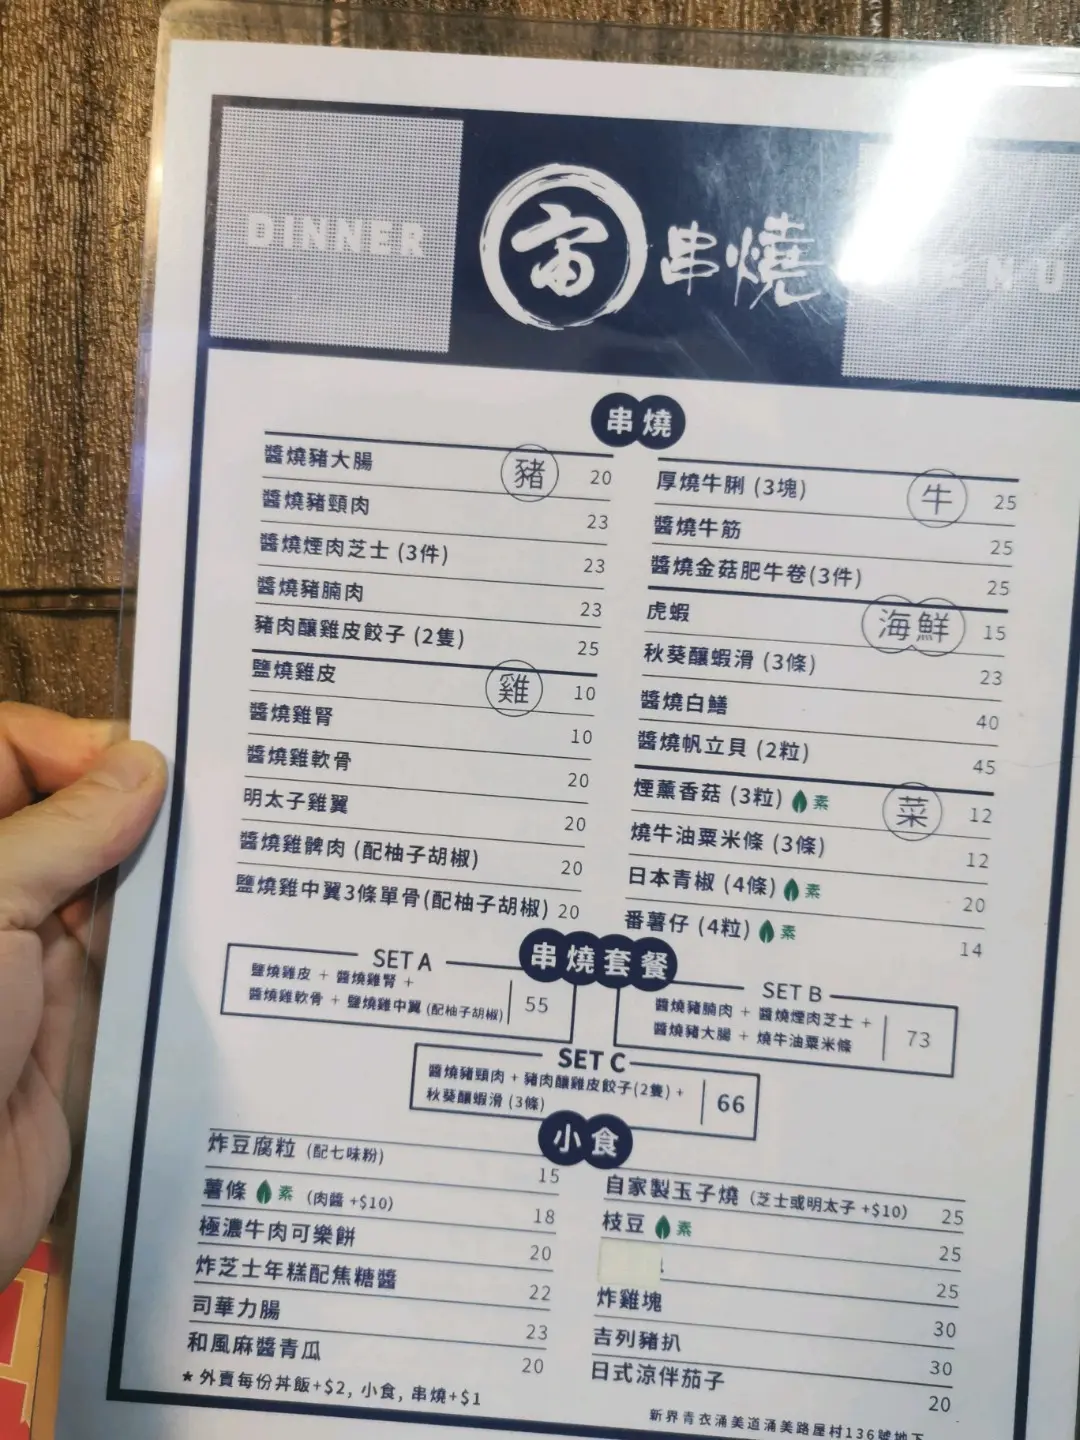 DINNER
串燒
MENU
串燒
豬
醬燒豬大腸 20
醬燒豬頸肉 23
醬燒煙肉芝士 (3件) 23
醬燒豬腩肉 23
豬肉釀雞皮餃子 (2隻) 25
雞
鹽燒雞皮 10
醬燒雞腎 10
醬燒雞軟骨 20
明太子雞翼 20
醬燒雞髀肉 (配柚子胡椒) 20
鹽燒雞中翼3條單骨(配柚子胡椒) 20
牛
厚燒牛脷 (3塊) 25
醬燒牛筋 25
醬燒金菇肥牛卷(3件) 25
海鮮
虎蝦 15
秋葵釀蝦滑 (3條) 23
醬燒白鱔 40
醬燒帆立貝 (2粒) 45
菜
煙薰香菇 (3粒) 素 12
燒牛油粟米條 (3條) 12
日本青椒 (4條) 素 20
番薯仔 (4粒) 素 14
串燒套餐
SET A
鹽燒雞皮 + 醬燒雞腎 +
醬燒雞軟骨 + 鹽燒雞中翼 (配柚子胡椒)
55
SET B
醬燒豬腩肉 + 醬燒煙肉芝士 +
醬燒豬大腸 + 燒牛油粟米條
73
SET C
醬燒豬頸肉 + 豬肉釀雞皮餃子(2隻) +
秋葵釀蝦滑 (3條)
66
小食
炸豆腐粒 (配七味粉) 15
薯條 素 (肉醬 +$10) 18
極濃牛肉可樂餅 20
炸芝士年糕配焦糖醬 22
司華力腸 23
和風麻醬青瓜 20
自家製玉子燒 (芝士或明太子 +$10) 25
枝豆 素 25
25
炸雞塊 30
吉列豬扒 30
日式涼伴茄子 20
★外賣每份丼飯+$2, 小食, 串燒+$1
新界青衣涌美道涌美路屋村136號地下